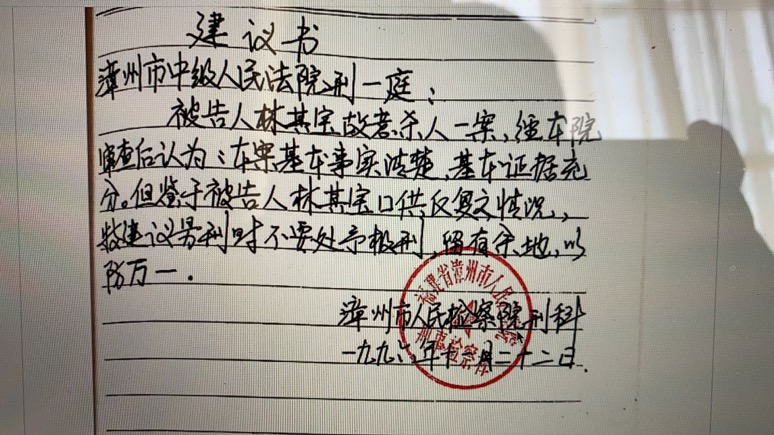 建议书
漳州市中级人民法院刑一庭：
被告人林其宗故意杀人一案，经本院
审查后认为：本案基本事实清楚，基本证据充
分。但鉴于被告人林其宗口供反复之情况，
故建议量刑时不要处予极刑，留有余地，以
防万一.
漳州市人民检察院刑科
一九九六年十月二十二日.
福建省漳州市人民检察院
刑事检察